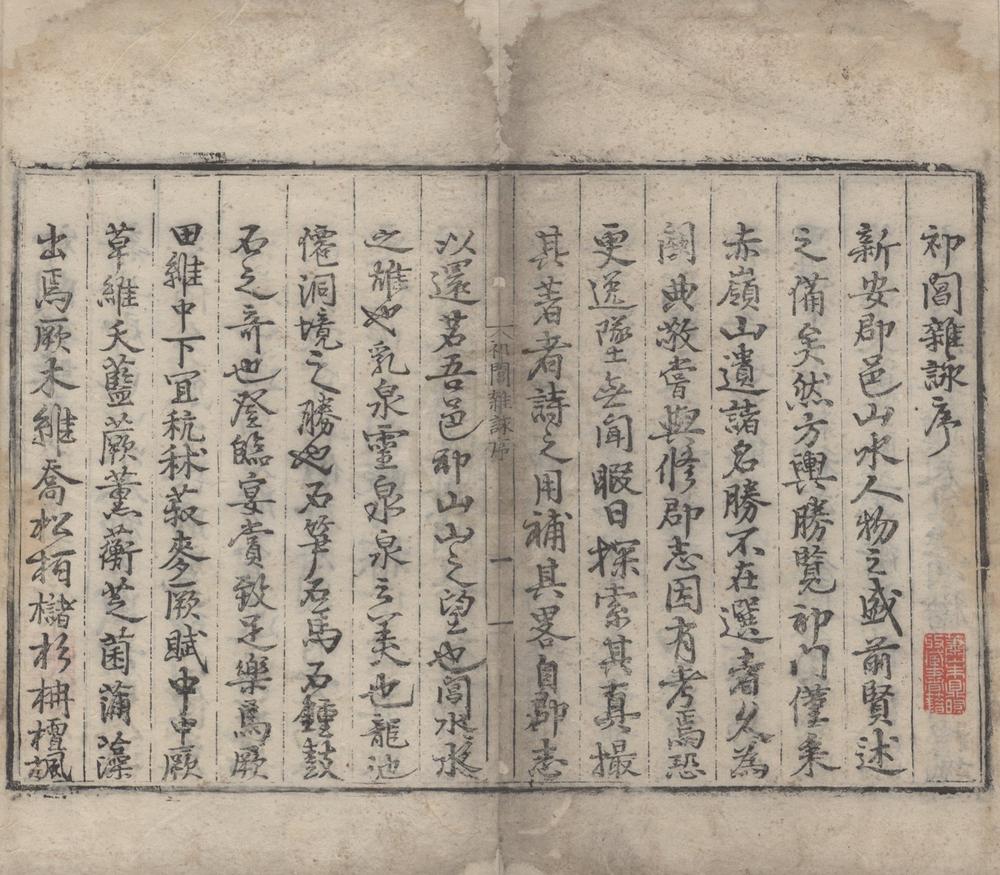 祁閶雜詠序
新安郡邑山水人物之盛前賢述
之備矣然方輿勝覽祁門僅采
赤嶺山遺諸名勝不在選者久為
闕典敬嘗與修郡志因有考焉恐
更逸墜無聞暇日探索其真撮
其著者詩之用補其畧自郡志
以還若吾邑祁山山之望也閶水水
之雄也乳泉靈泉泉之美也龍池
僊洞境之勝也石筍石馬石鍾鼓
石之奇也登臨宴賞致足樂焉厥
田維中下宜秔秫菽麥厥賦中中厥
草維夭藍蕨薰蘅芝菌蒲藻
出焉厥木維喬松栢櫧杉枏檀諷
祁閶雜詠序
一